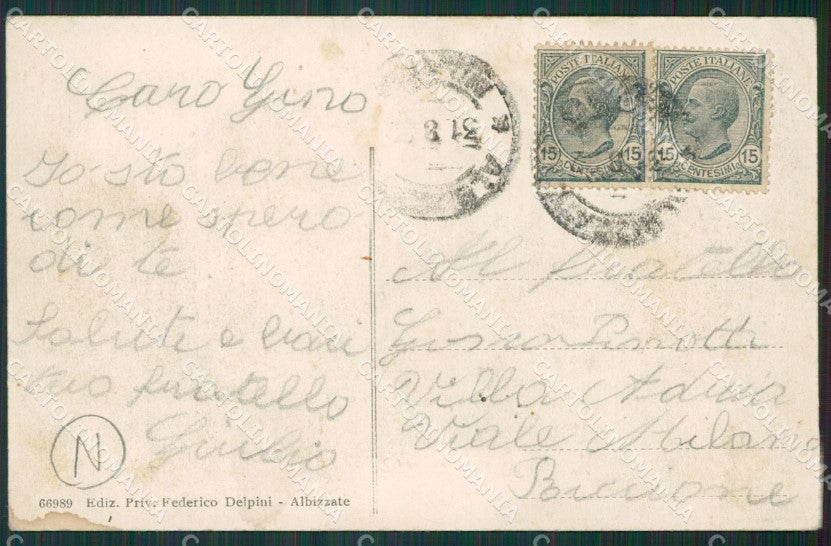 Caro Gino
Io sto bene
come spero
di te
Saluti e baci
tuo fratello
Giulio
N
66989 Ediz. Priv. Federico Delpini - Albizzate
POSTE ITALIANE
15 CENTESIMI 15
POSTE ITALIANE
15 CENTESIMI 15
31 8
Al fratello
Pinotti
Villa Adria
Viale Milano
Riccione
CARTOLINOMANIA